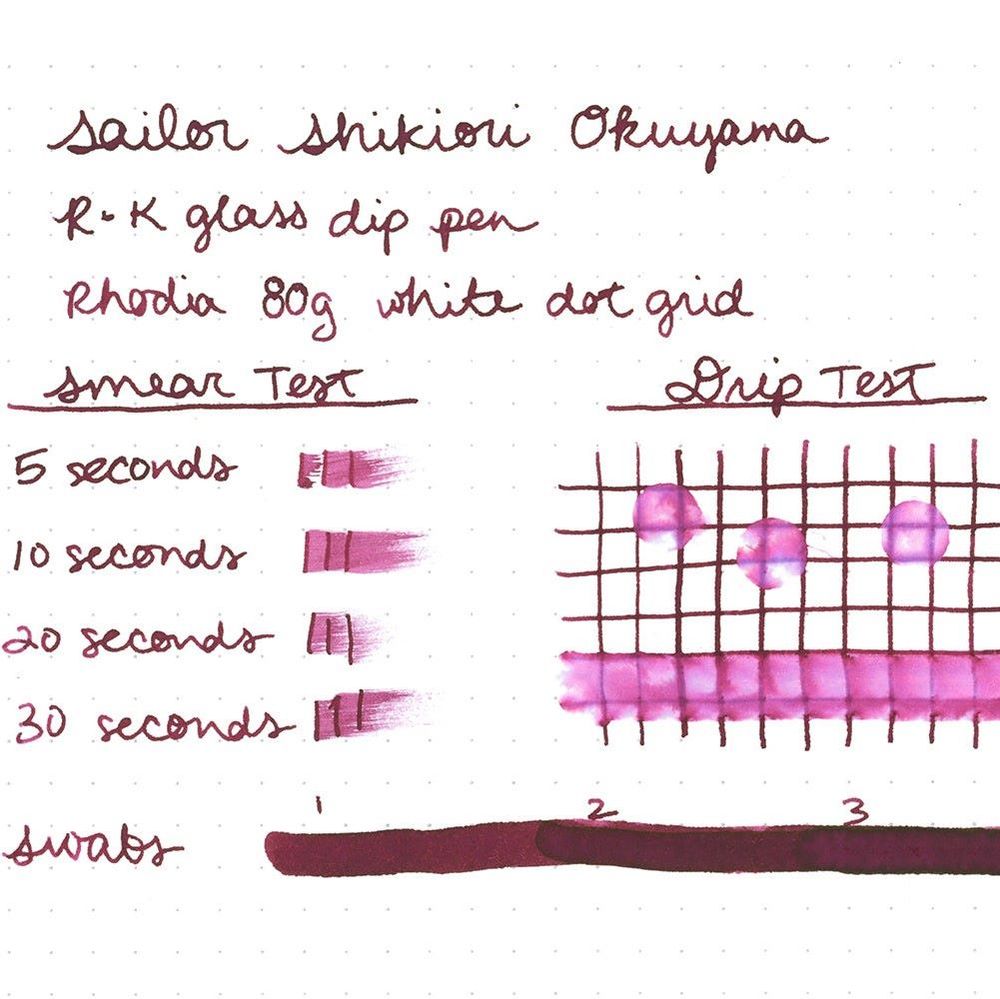 Sailor Shikiori Okuyama
R-K glass dip pen
Rhodia 80g white dot grid
Smear Test
5 seconds
10 seconds
20 seconds
30 seconds
Drip Test
swabs
1 2 3